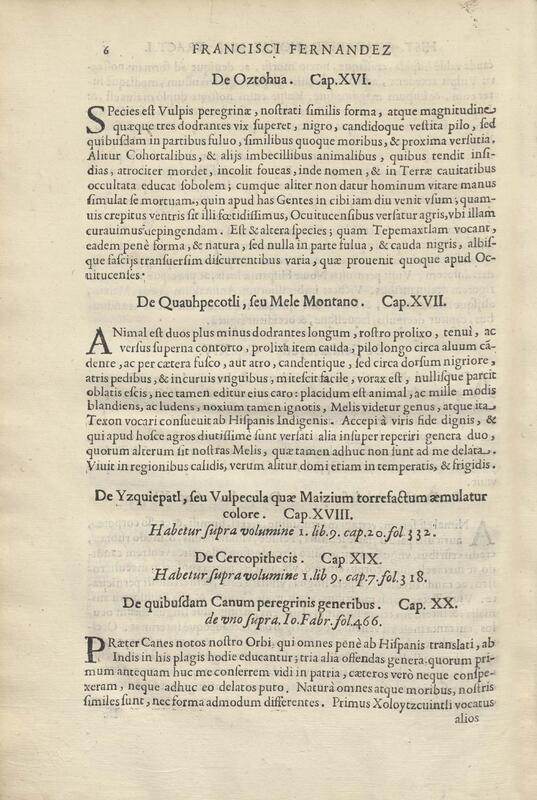 6 FRANCISCI FERNANDEZ
De Oztohua. Cap. XVI.
SPecies est Vulpis peregrinæ, nostrati similis forma, atque magnitudine
quæque tres dodrantes vix superet, nigro, candidoque vestita pilo, sed
quibusdam in partibus fuluo, similibus quoque moribus, & proxima versutia.
Alitur Cohortalibus, & alijs imbecillibus animalibus, quibus tendit insi-
dias, atrociter mordet, incolit foueas, inde nomen, & in Terræ cauitatibus
occultata educat sobolem; cumque aliter non datur hominum vitare manus
simulat se mortuam, quin apud has Gentes in cibi iam diu venit vsum; quam-
uis crepitus ventris sit illi fœtidissimus, Ocuitucensibus versatur agris, vbi illam
curauimus depingendam. Est & altera species; quam Tepemaxtlam vocant,
eadem penè forma, & natura, sed nulla in parte fulua, & cauda nigris, albis-
que fascijs transuersim discurrentibus varia, quæ prouenit quoque apud Oc-
uitucenses.
De Quauhpecotli, seu Mele Montano. Cap. XVII.
ANimal est duos plus minus dodrantes longum, rostro prolixo, tenui, ac
versus superna contorto, prolixa item cauda, pilo longo circa aluum cã-
dente, ac per cætera fusco, aut atro, candentique, sed circa dorsum nigriore,
atris pedibus, & incuruis vnguibus, mitescit facile, vorax est, nullisque parcit
oblatis escis, nec tamen editur eius caro: placidum est animal, ac mille modis
blandiens, ac ludens, noxium tamen ignotis, Melis videtur genus, atque ita
Texon vocari consueuit ab Hispanis Indigenis. Accepi à viris fide dignis, &
qui apud hosce agros diutissimè sunt versati alia insuper reperiri genera duo,
quorum alterum sit nostras Melis, quæ tamen adhuc non sunt ad me delata.
Viuit in regionibus calidis, verum alitur domi etiam in temperatis, & frigidis.
De Yzquiepatl, seu Vulpecula quæ Maizium torrefactum æmulatur
colore. Cap. XVIII.
Habetur supra volumine 1. lib. 9. cap. 20. fol 332.
De Cercopithecis. Cap XIX.
Habetur supra volumine 1. lib 9. cap. 7. fol. 318.
De quibusdam Canum peregrinis generibus. Cap. XX.
de vno supra. Io. Fabr. fol. 466.
PRæter Canes notos nostro Orbi, qui omnes penè ab Hispanis translati, ab
Indis in his plagis hodie educantur; tria alia offendas genera, quorum pri-
mum antequam huc me conferrem vidi in patria, cæteros verò neque conspe-
xeram, neque adhuc eo delatos puto. Natura omnes atque moribus, nostris
similes sunt, nec forma admodum differentes. Primus Xoloytzcuintli vocatus
alios